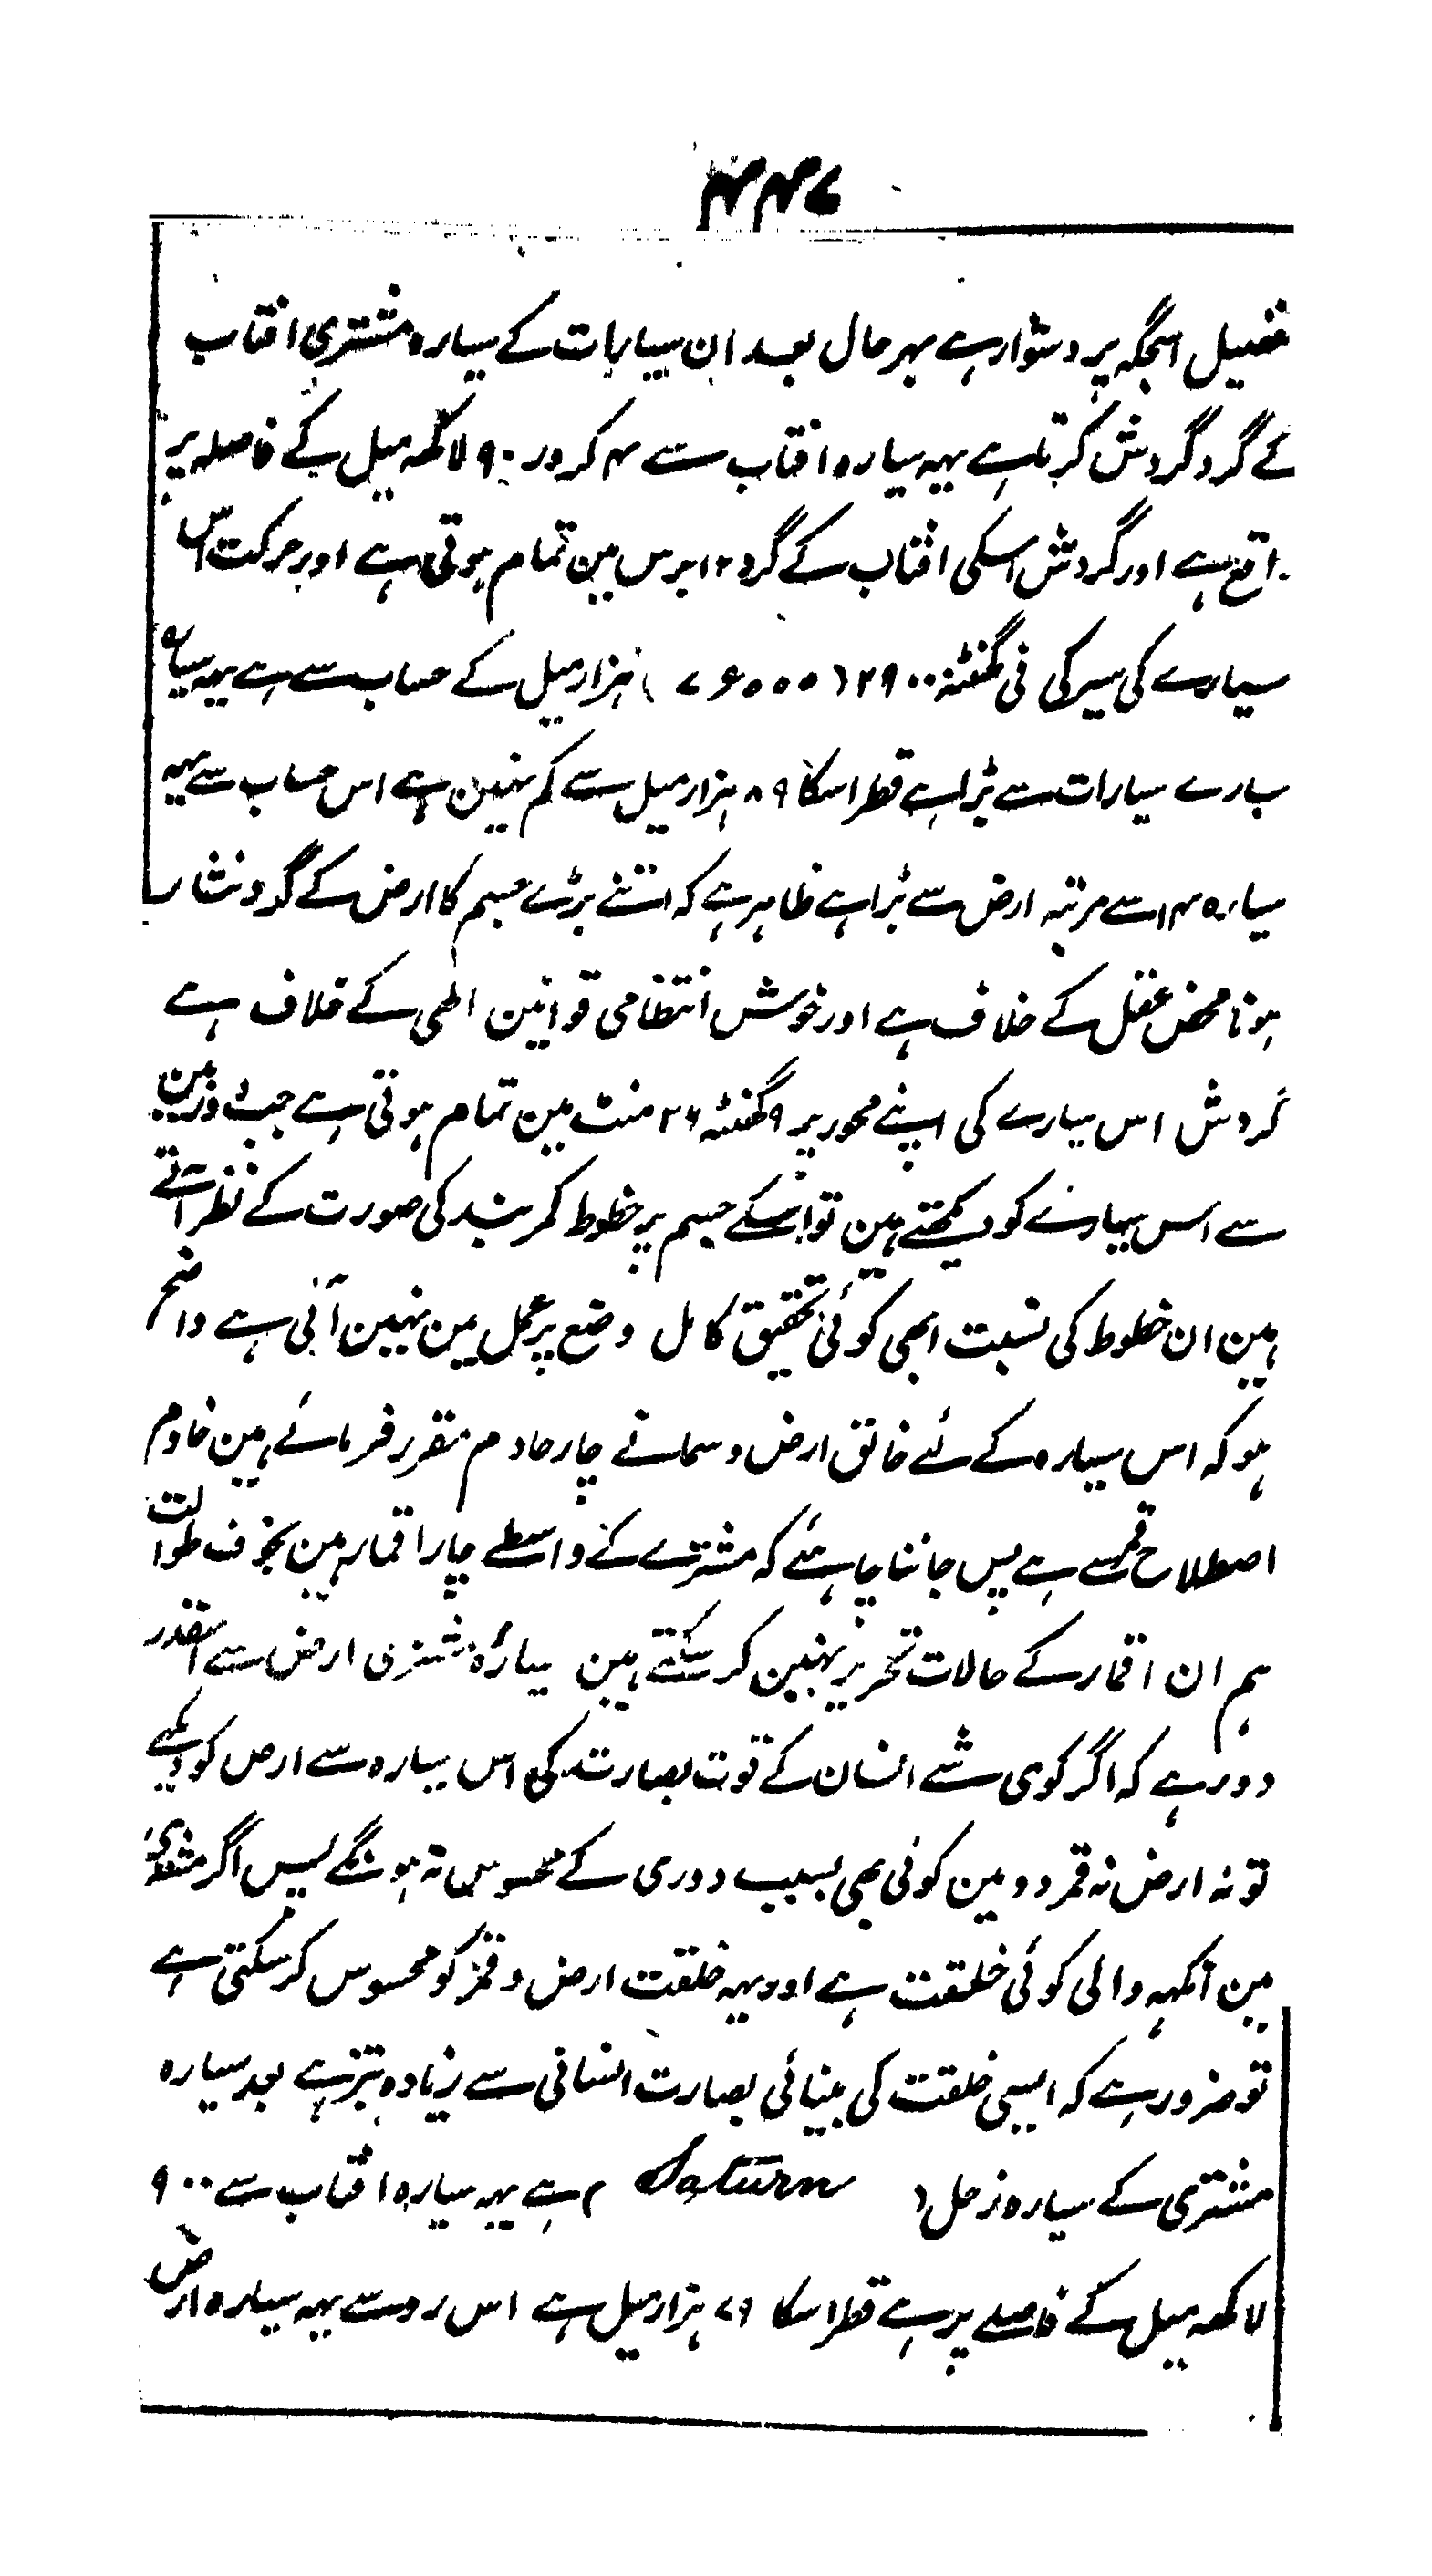 ۴۴۷
فضیل اسجگہ پر دشوار ہے بہر حال بعد ان سیارات کے سیارہ مشتری افتاب
کے گرد گردش کرتا ہے یہہ سیارہ افتاب سے ۴ کرور ۹۰ لاکھہ میل کے فاصلہ پر
واقع ہے اور گردش اسکی افتاب کے گرد ۱۲ برس مین تمام ہوتی ہے اور حرکت اس
سیارے کی سیر کی فی گھنٹہ ہزار میل کے حساب سے ہے یہہ سیارہ
سارے سیارات سے بڑا ہے قطر اسکا ۸۹ ہزار میل سے کم نہین ہے اس حساب سے یہہ
سیارہ ۱۴ سے مرتبہ ارض سے بڑا ہے ظاہر ہے کہ اتنے بڑے جسم کا ارض کے گرد نثار
ہونا محض عقل کے خلاف ہے اور خوش انتظامی قوانین الٰہی کے خلاف ہے
گردش اس سیارے کی اپنے محور پر ۹ گھنٹہ ۲۶ منٹ مین تمام ہوتی ہے جب دوربین
سے اس سیارے کو دیکھتے ہین تو اسکے جسم پر خطوط کمر بند کی صورت کے نظر آتے
ہین ان خطوط کی نسبت ابھی کوئی تحقیق کامل وضع پر عمل مین نہین آئی ہے واضح
ہو کہ اس سیارہ کے لئے خالق ارض و سمانے چار خادم مقرر فرمائے ہین خادم
اصطلاح قمر سے ہے پس جاننا چاہئے کہ مشترے کے واسطے چار اقمار ہین بخوف طوالت
ہم ان اقمار کے حالات تحریر نہین کر سکتے ہین سیارۂ مشتری ارض سے اسقدر
دور ہے کہ اگر کوی شے انسان کے قوت بصارت کی اس سیارہ سے ارض کو دیکھے
تو نہ ارض نہ قمر دو مین کوئی بھی بسبب دوری کے محسوس نہ ہونگے پس اگر مشتری
مین آنکہہ والی کوئی خلقت ہے اور یہہ خلقت ارض و قمر کو محسوس کر سکتی ہے
تو ضرور ہے کہ ایسی خلقت کی بینائی بصارت انسانی سے زیادہ تیز ہے بعد سیارہ
مشتری کے سیارہ زحل ( Saturn ) ہے یہہ سیارہ افتاب سے ۹۰۰
لاکھہ میل کے فاصلے پر ہے قطر اسکا ۷۹ ہزار میل ہے اس رو سے یہہ سیارہ ارض